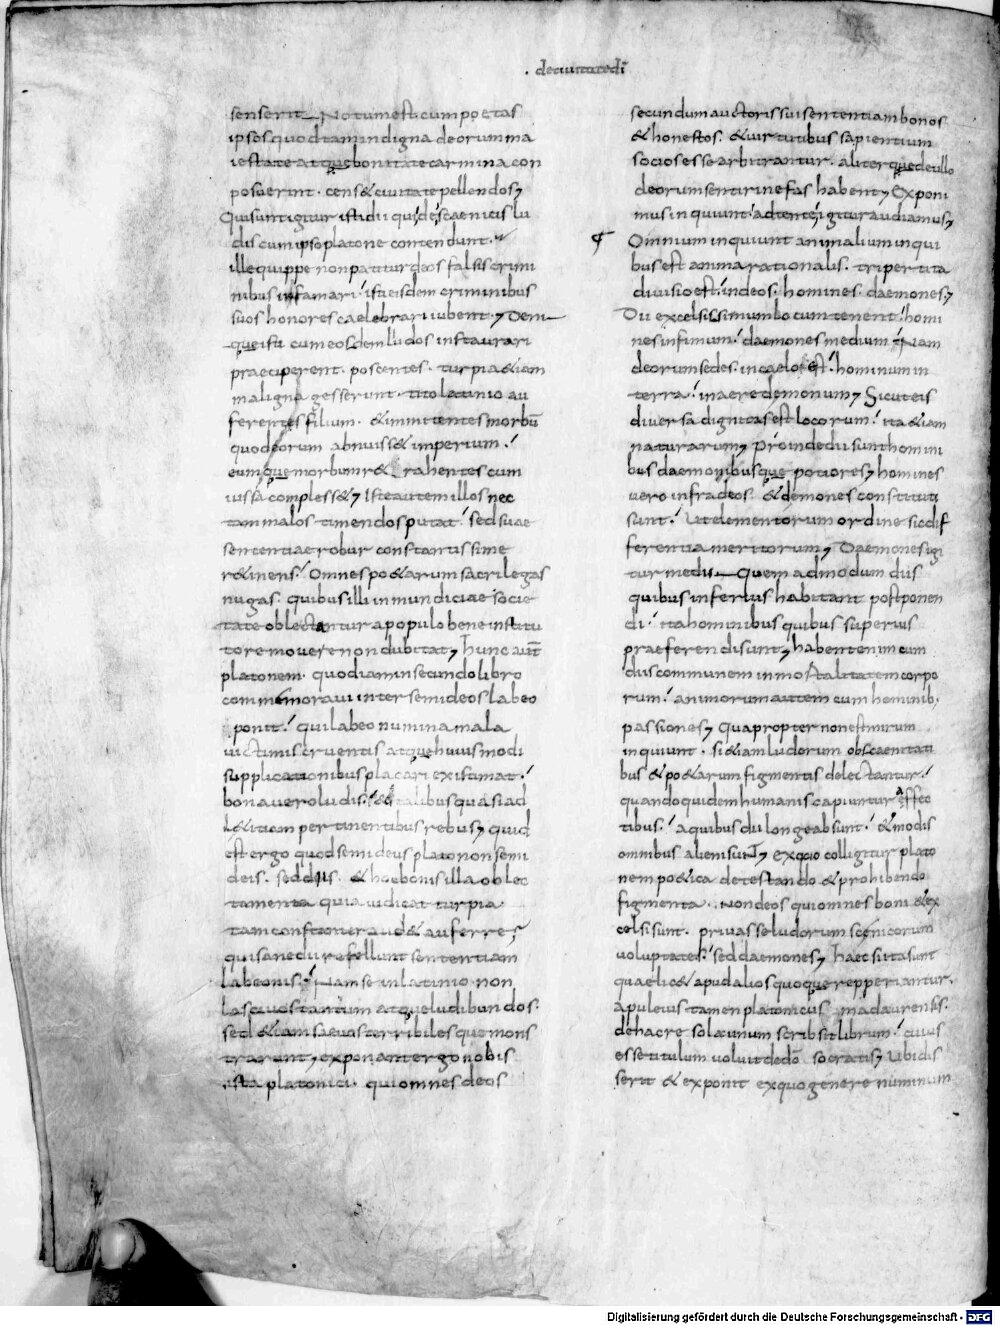 . deciuitatedī
senserit Notum est cum poetas
ipsos quod tam indigna deorum ma
iestate atque bonitate carmina con
posuerint . cens& ciuitate pellendos;
Qui sunt igitur isti dii qui de scaenicis lu
dis cum ipso platone contendunt .
ille quippe non patitur deos falsis crimi
nibus infamari ! isti eisdem criminibus
suos honores caelebrari iubent ; Deni
que isti cum eosdem ludos instaurari
praeciperent . poscentes . turpia &iam
maligna gesserunt . tito latinio au
ferentes filium . & inmittentes morbū
quod eorum abnuiss& imperium !
eumque morbum r&rahentes cum
iussa compless& ; Iste autem illos nec
tam malos timendos putat ! sed suae
sententiae robur constantissime
r&inens ! Omnes po&arum sacrilegas
nugas . quibus illi inmundiciae socie
tate oblectantur a populo bene institu
to remouere non dubitat ; hunc aut̄
platonem . quod iam in secundo libro
commemoraui inter semideos labeo
ponit ! qui labeo numina mala
uictimis cruentis atque huiusmodi
supplicationibus placari existimat !
bona uero ludis ! & talibus quasi ad
l&itiam pertinentibus rebus ; quid
est ergo quod semideus plato non semi
deis . sed diis . & hoc bonis illa oblec
tamenta quia iudicat turpia
tam constanter aud& auferre ;
qui sane dii refellunt sententiam
labeonis ! Nam se in latinio non
lasciuos tantum atque ludibundos .
sed &iam saeuos terribilesque mons
trarunt ; exponant ergo nobis
ista platonici . qui omnes deos
secundum auctoris sui sententiam bonos
& honestos . & uirtutibus sapientium
socios esse arbitrantur . aliterque de ullo
deorum sentiri nefas habent ; Exponi
mus inquiunt ! adtente igitur audiamus ;
Omnium inquiunt animalium in qui
bus est anima rationalis . tripertita
diuisio est . in deos . homines . daemones ;
Dii excelsissimum locum tenent ! homi
nes infimum ! daemones medium ! Nam
deorum sedes . in caelo est ! hominum in
terra ! in aere demonum ; Sicut eis
diuersa dignitas est locorum ! ita &iam
naturarum ; Proinde dii sunt homini
bus daemonibusque potiores ; homines
uero infra deos . & demones constituti
sunt ! Ut elementorum ordine sic dif
ferentia meritorum ; Daemones igi
tur medii Quemadmodum diis
quibus inferius habitant postponen
di ! ita hominibus quibus superius
praeferendi sunt ; habent enim cum
diis communem inmortalitatem corpo
rum ! animorum autem cum hominib .
passiones ; Quapropter non est mirum
inquiunt . si &iam ludorum obscaenitati
bus & po&arum figmentis delectantur !
quando quidem humanis capiuntur affec
tibus ! a quibus dii longe absunt ! & modis
omnibus alieni sunt ; Ex quo colligitur plato
nem po&ica detestando & prohibendo
figmenta . Non deos qui omnes boni & ex
celsi sunt . priuasse ludorum scenicorum
uoluptates ! sed daemones ; haec si ita sunt
quae lic& apud alios quoque repperiantur .
apuleius tamen platonicus madaurensis .
de hac re sola unum scribsit librum ! cuius
esse titulum uoluit de dō socratis ; Ubi dis
serit & exponit ex quo genere numinum
Digitalisierung gefördert durch die Deutsche Forschungsgemeinschaft - DFG